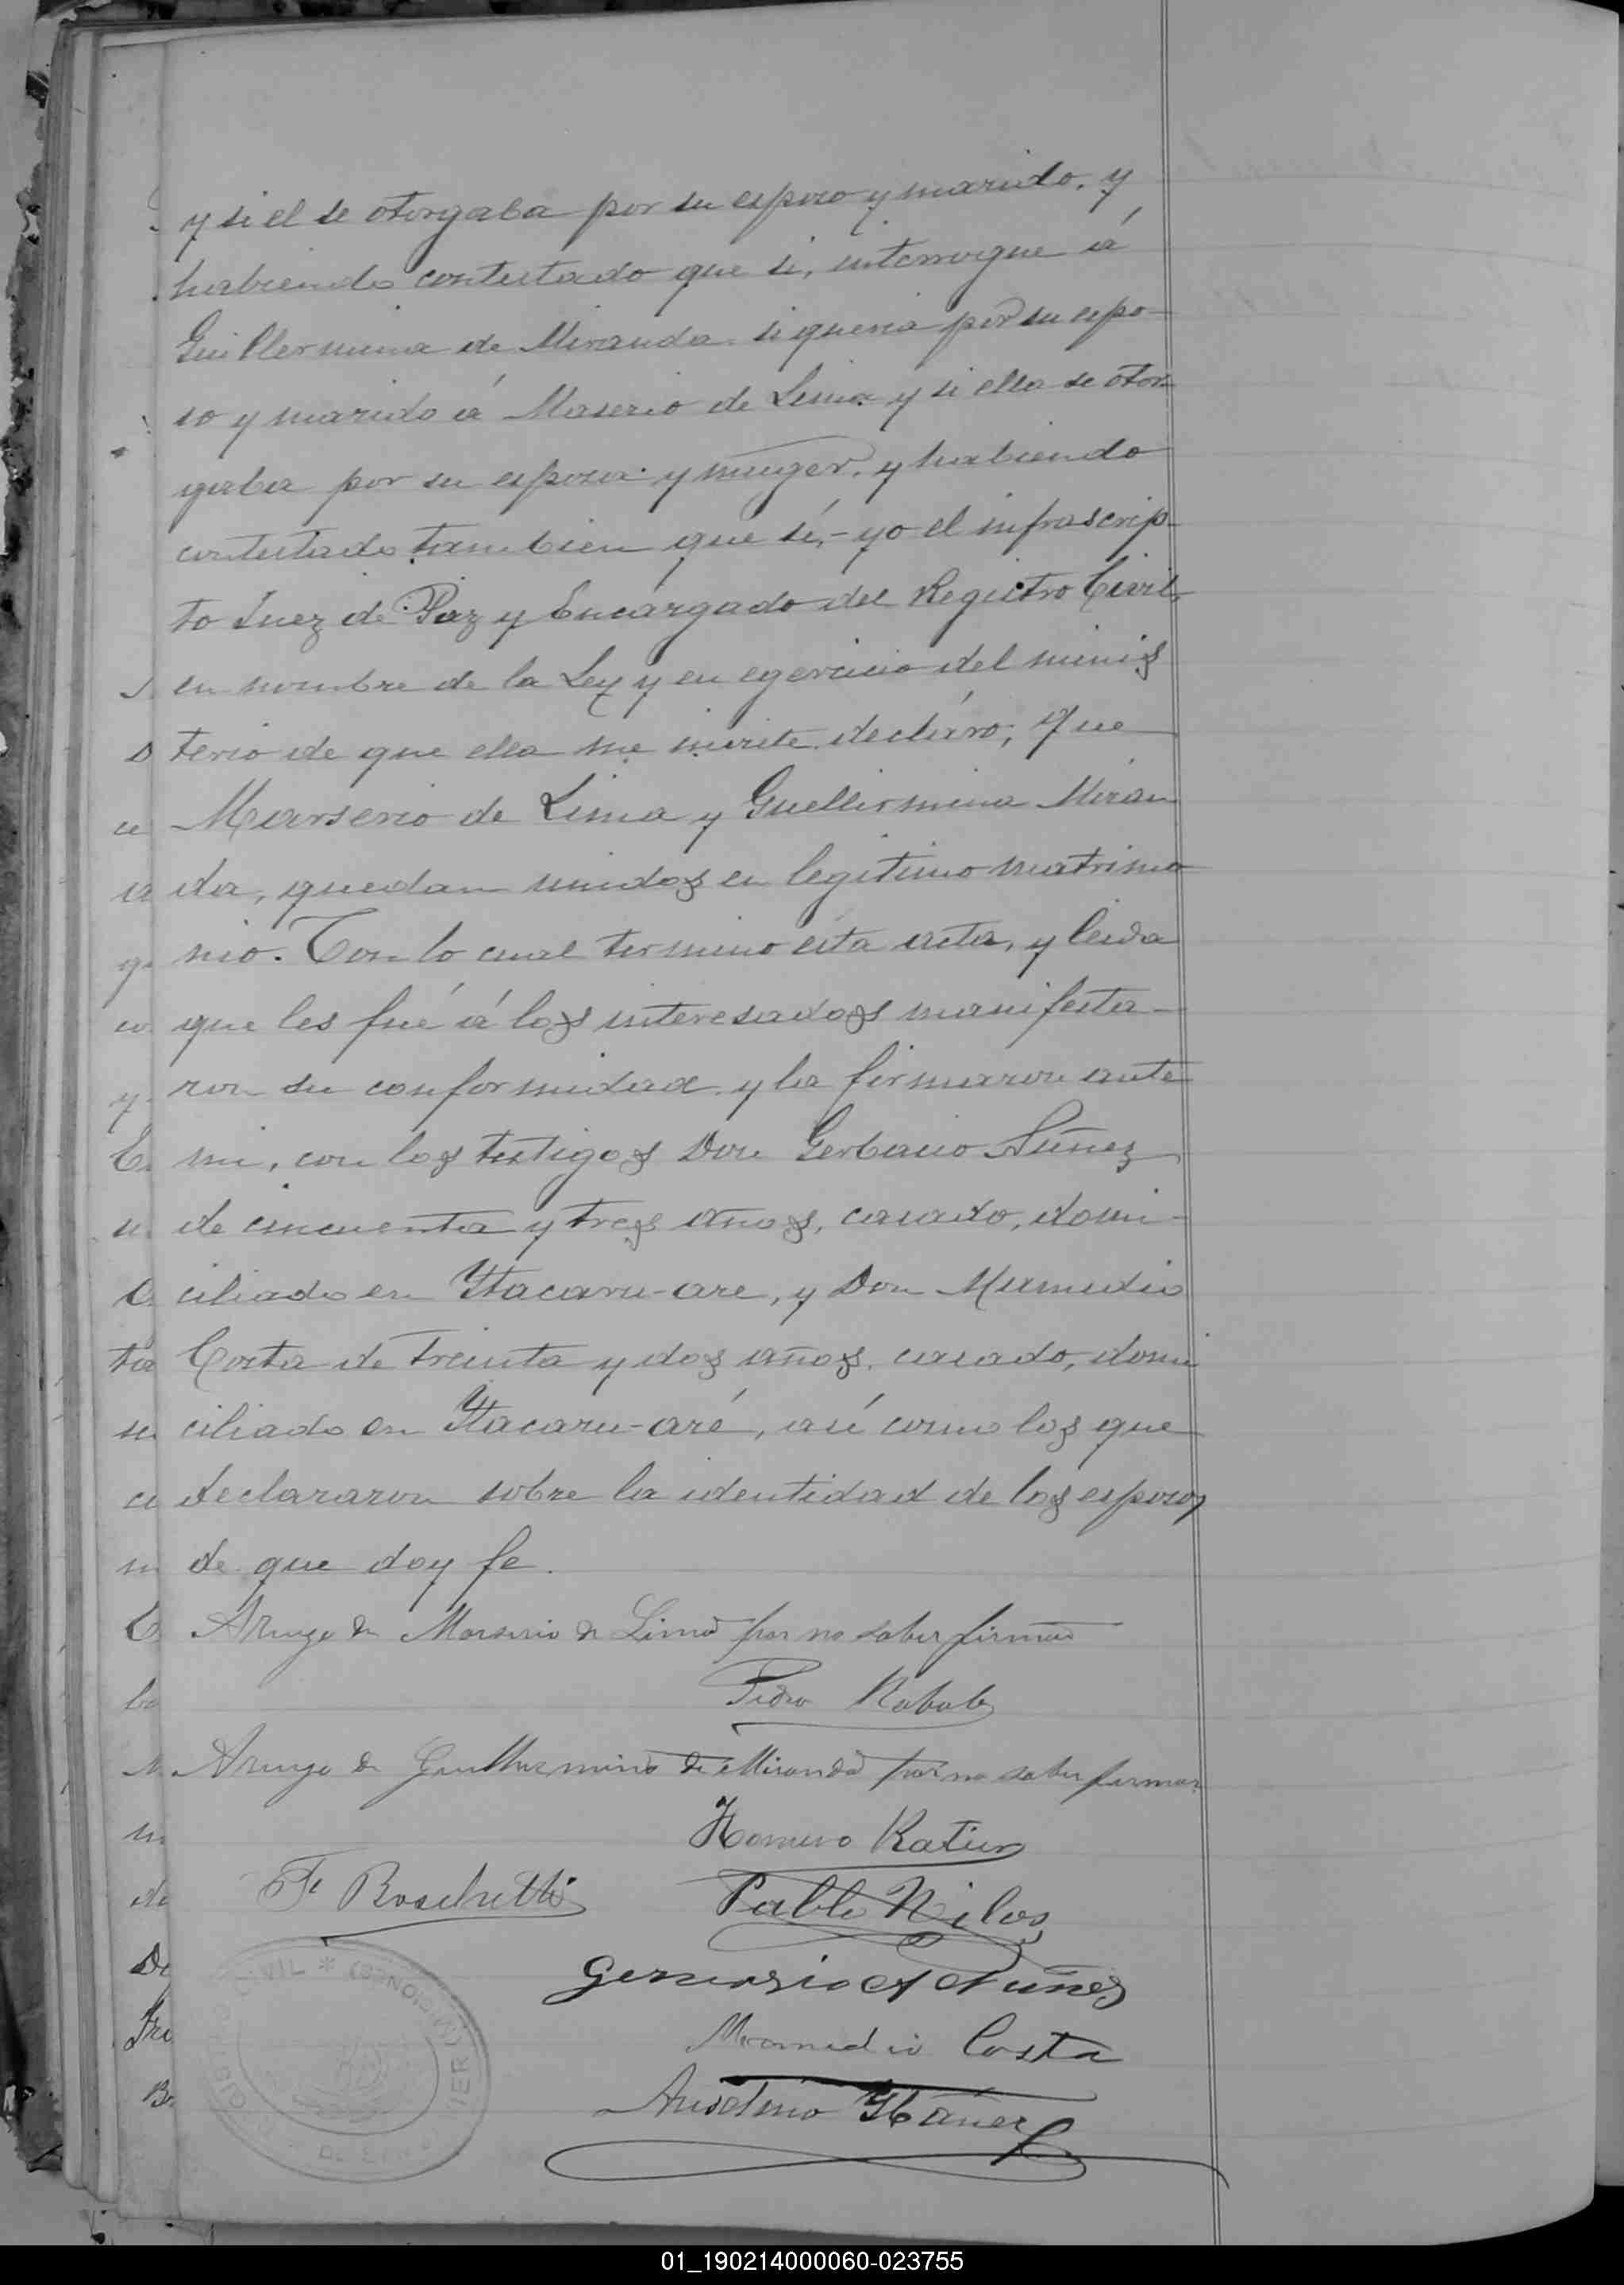 y si el se otorgaba por su espozo y marido, y
habiendo contestado que si, interrogue á
Guillermina de Miranda si queria por su espo-
so y marido á Maserio de Lima y si ella se otor-
gaba por su espoza y muger, y habiendo
contestado tambien que sí,- yo el infrascrip-
to Juez de Paz y Encargado del Registro Civil,
en nombre de la Ley y en egercicio del minis
terio de que ella me inviste declaro, que
Marserio de Lima y Guellirmina Miran
da, quedan unidos en legitimo matrimo
nio. Con lo cual termino esta acta, y leida
que les fué á los interesados manifesta-
ron su conformidad y la firmaron ante
mi, con los testigos Don Gerbacio Nuñez
de cincuenta y tres años, casado, domi-
ciliado en Ytacaru-are, y Don Mamedio
Costa de treinta y dos años, casado, domi
ciliado en Ytacaru-aré, asi como los que
declararon sobre la identidad de los espozos
de que doy fe.
Aruego de Marserio de Lima por no saber firmar
Pedro
Aruego de Guilhermina de Miranda por no saber firmar
Homero
F Boschetti Pablo
Gervasio A Nuñes
Mamedio Costa
Anselmo Ybañez
CIVIL * (MISIONES)
01_190214000060-023755